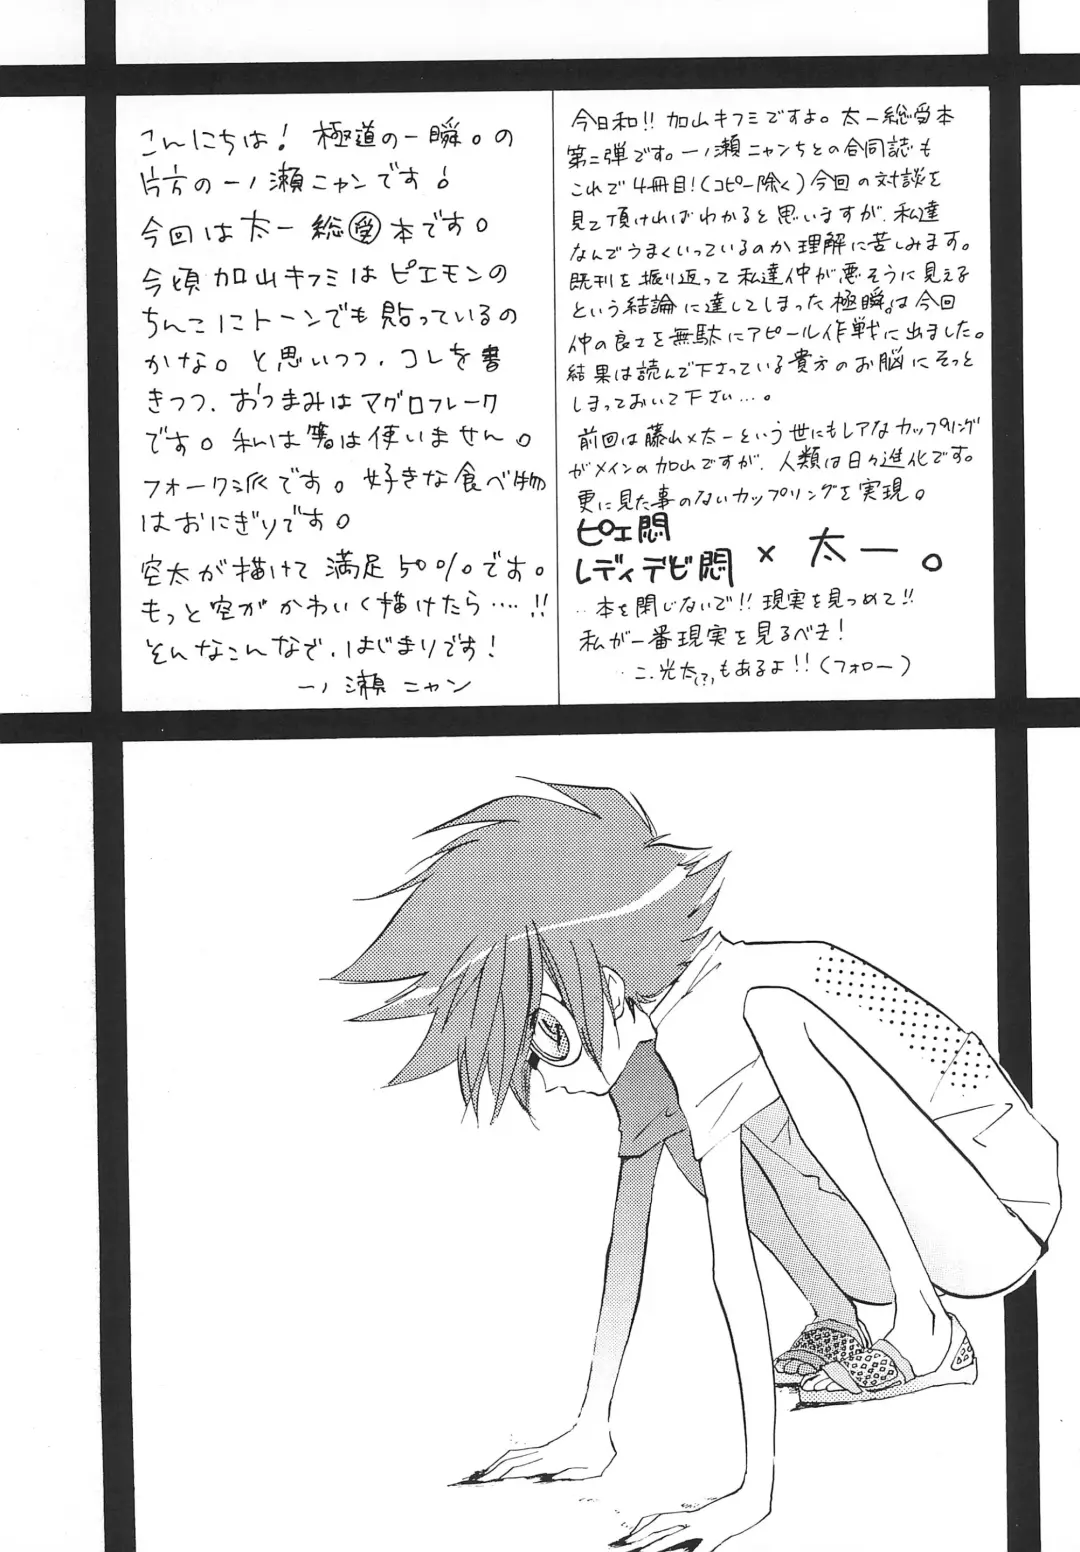 こんにちは！極道の一瞬。の
片方の一ノ瀬ニャンです！
今回は太一総受本です。
今頃加山キフミはピエモンの
ちんこにトーンでも貼っているの
かな。と思いつつ、コレを書
きつつ、おつまみはマグロフレーク
です。私は箸は使いません。
フォーク派です。好きな食べ物
はおにぎりです。
空太が描けて満足50％です。
もっと空がかわいく描けたら……!!
そんなこんなで、はじまりです！
一ノ瀬ニャン
今日和!!加山キフミですよ。太一総受本
第二弾です。一ノ瀬ニャンちとの合同誌も
これで4冊目！(コピー除く)今回の対談を
見て頂ければわかると思いますが、私達
なんでうまくいっているのか理解に苦しみます。
既刊を振り返って私達仲が悪そうに見える
という結論に達してしまった極瞬。は今回
仲の良さを無駄にアピール作戦に出ました。
結果は読んで下さっている貴方のお脳にそっと
しまっておいて下さい…。
前回は藤山×太一という世にもレアなカップリング
がメインの加山ですが、人類は日々進化です。
更に見た事のないカップリングを実現。
ピエ悶
レディデビ悶 × 太一。
‥本を閉じないで!!現実を見つめて!!
私が一番現実を見るべき！
‥こ、光太(?)もあるよ!!(フォロー)